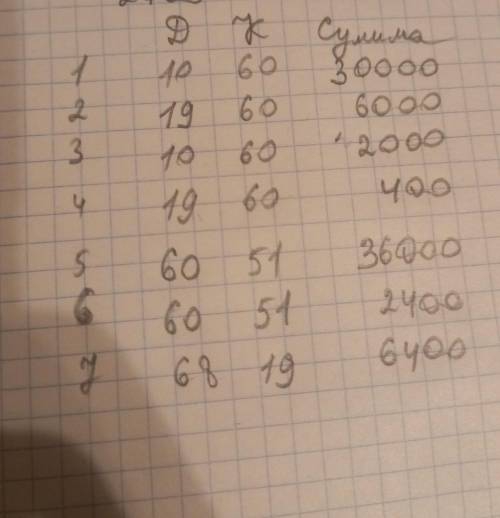 Д К Сумма
1 10 60 30000
2 19 60 6000
3 10 60 2000
4 19 60 400
5 60 51 36000
6 60 51 2400
7 68 19 6400